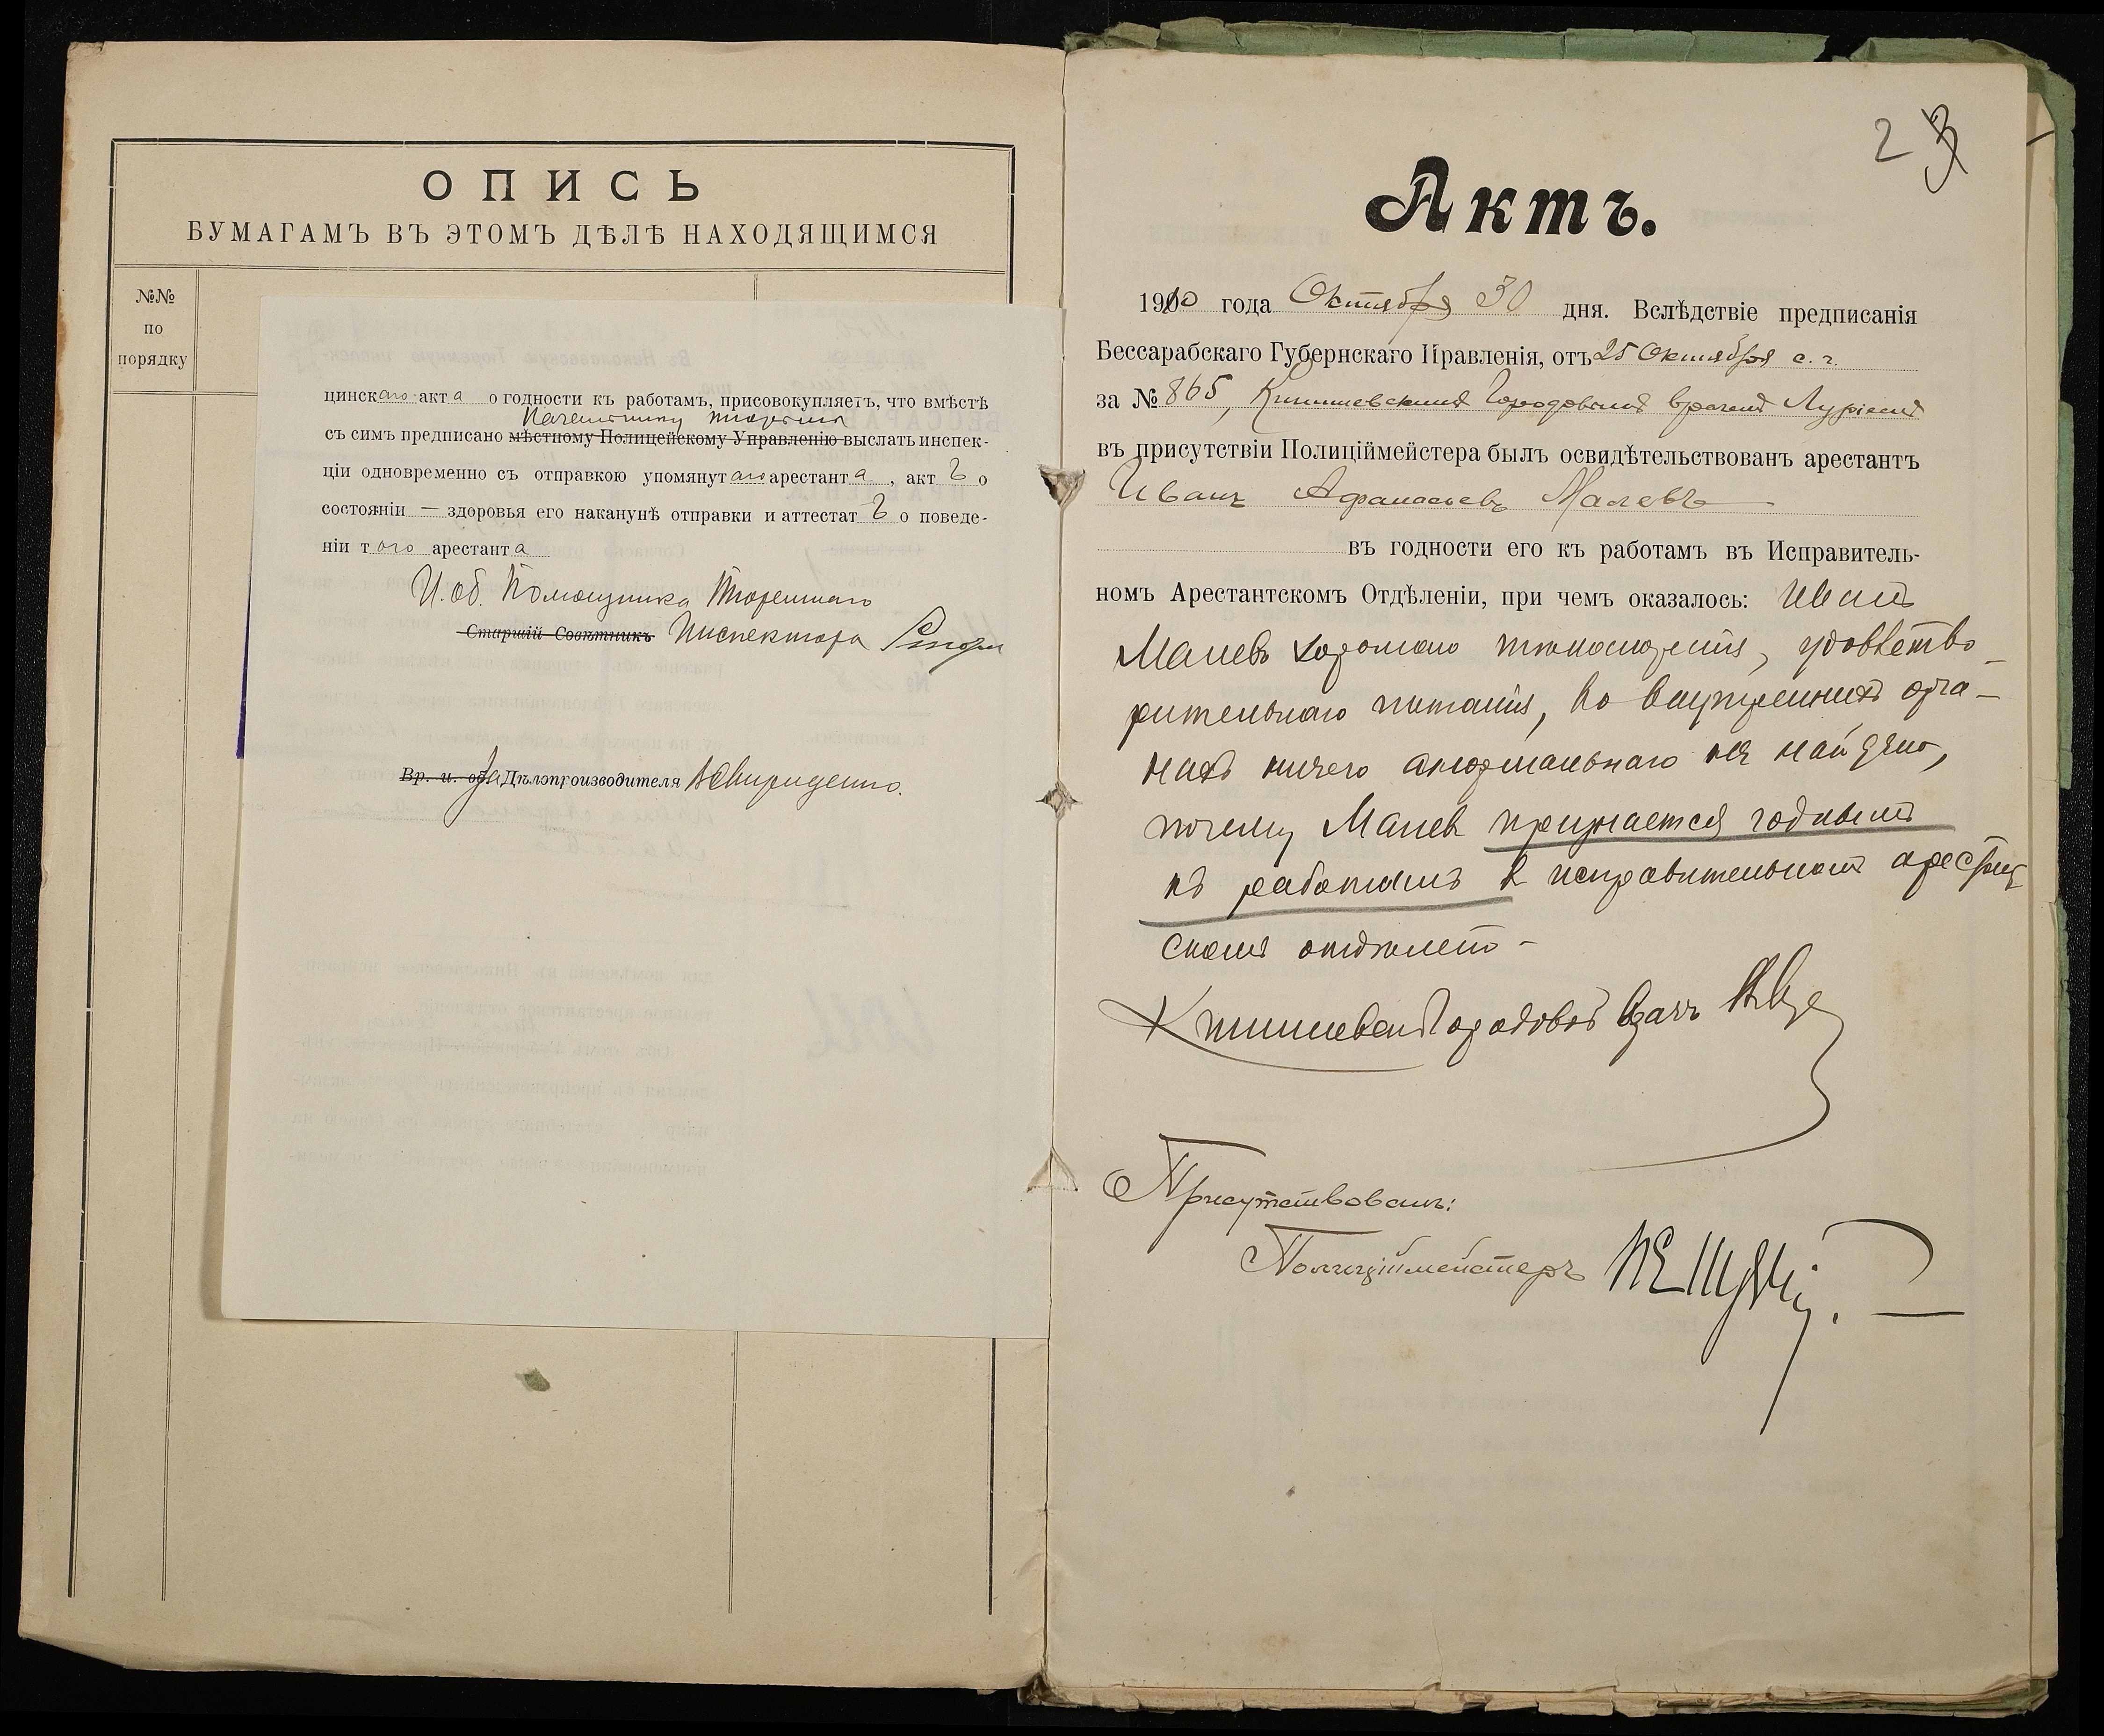 ОПИСЬ
БУМАГАМЪ ВЪ ЭТОМЪ ДѢЛѢ НАХОДЯЩИМСЯ
№№
по
порядку
цинскаго акта о годности къ работамъ, присовокупляетъ, что вмѣстѣ
Начальнику тюрьмы
съ симъ предписано мѣстному Полицейскому Управленію выслать инспек-
ціи одновременно съ отправкою упомянутаго арестанта, актъ о
состояніи — здоровья его наканунѣ отправки и аттестатъ о поведе-
ніи того арестанта
И. об. Помощника Тюремнаго
Старшій Совѣтникъ Инспектора
Вр. и. об. За Дѣлопроизводителя Свириденко.
2 3
Актъ.
1910 года Октября 30 дня. Вслѣдствіе предписанія
Бессарабскаго Губернскаго Правленія, отъ 25 Октября с. г.
за № 865, Кишиневскимъ Городовымъ врачемъ Луріемъ
въ присутствіи Полиціймейстера былъ освидѣтельствованъ арестантъ
Иванъ Афанасьевъ Малевъ
въ годности его къ работамъ въ Исправитель-
номъ Арестантскомъ Отдѣленіи, при чемъ оказалось: Иванъ
Малевъ хорошаго тѣлосложенія, удовлетво-
рительнаго питанія, во внутреннихъ орга-
нахъ ничего анормальнаго не найдено,
почему Малевъ признается годнымъ
къ работамъ въ исправительномъ арестант
скомъ отдѣленіи -
Кишиневскій Городовой Врачъ
Присутствовалъ:
Полиціймейстеръ